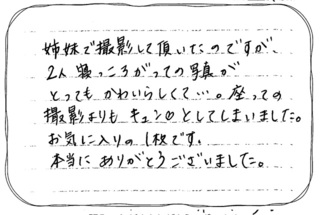 姉妹で撮影して頂いたのですが、
2人寝っころがっての写真が
とってもかわいらしくて…。座っての
撮影よりもキュン♡としてしまいました。
お気に入りの1枚です。
本当にありがとうございました。